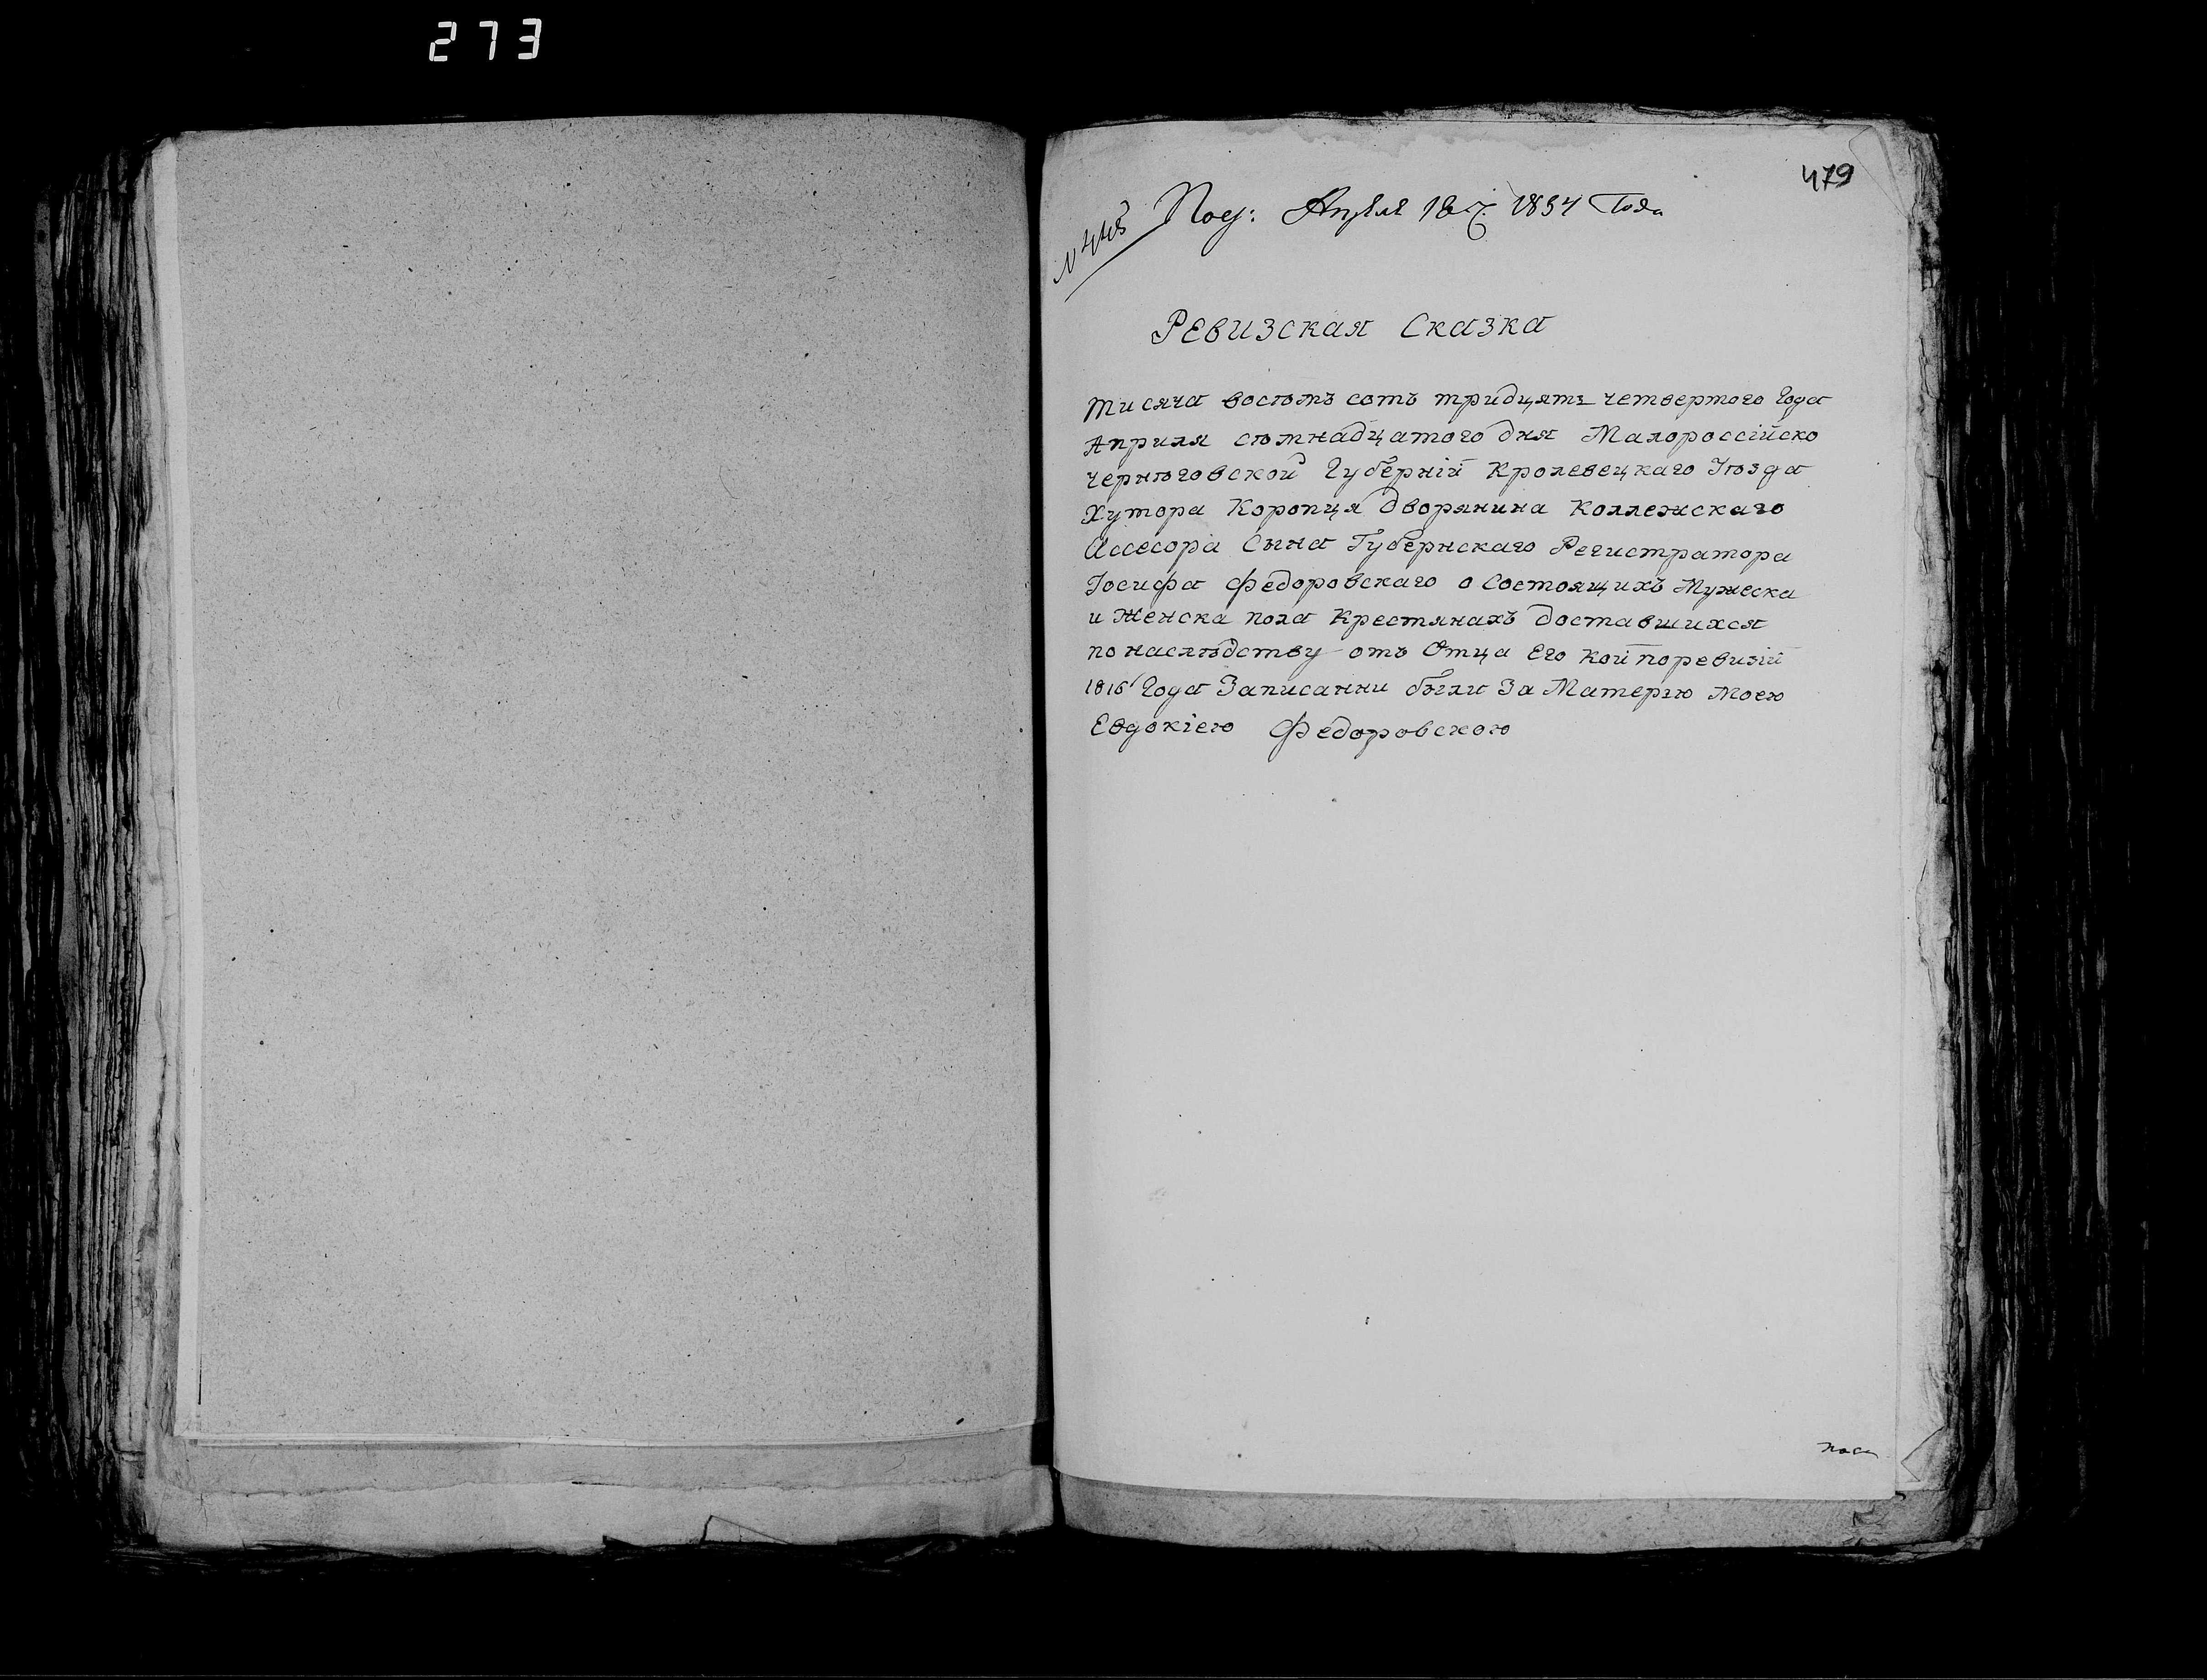 273
479
Апреля 18 1834 Года
Ревизская Сказка
тисяча восѣмъ сотъ тридцять четвертого Года
Априля сѣмнадцатого дня Малороссійско
Чернѣговской Губерній Кролевецкаго Уѣзда
Хутора Коропця Дворянина Коллежскаго
Ассесора Сына Губернскаго Регистратора
Іосифа Федоровскаго о Состоящихъ Мужеска
и Женска пола Крестянахъ доставшихся
по наслѣдству отъ Отца Его кой поревизій
1816 Года Записанни были За Матерю Моею
Евдокіею Федоровскою